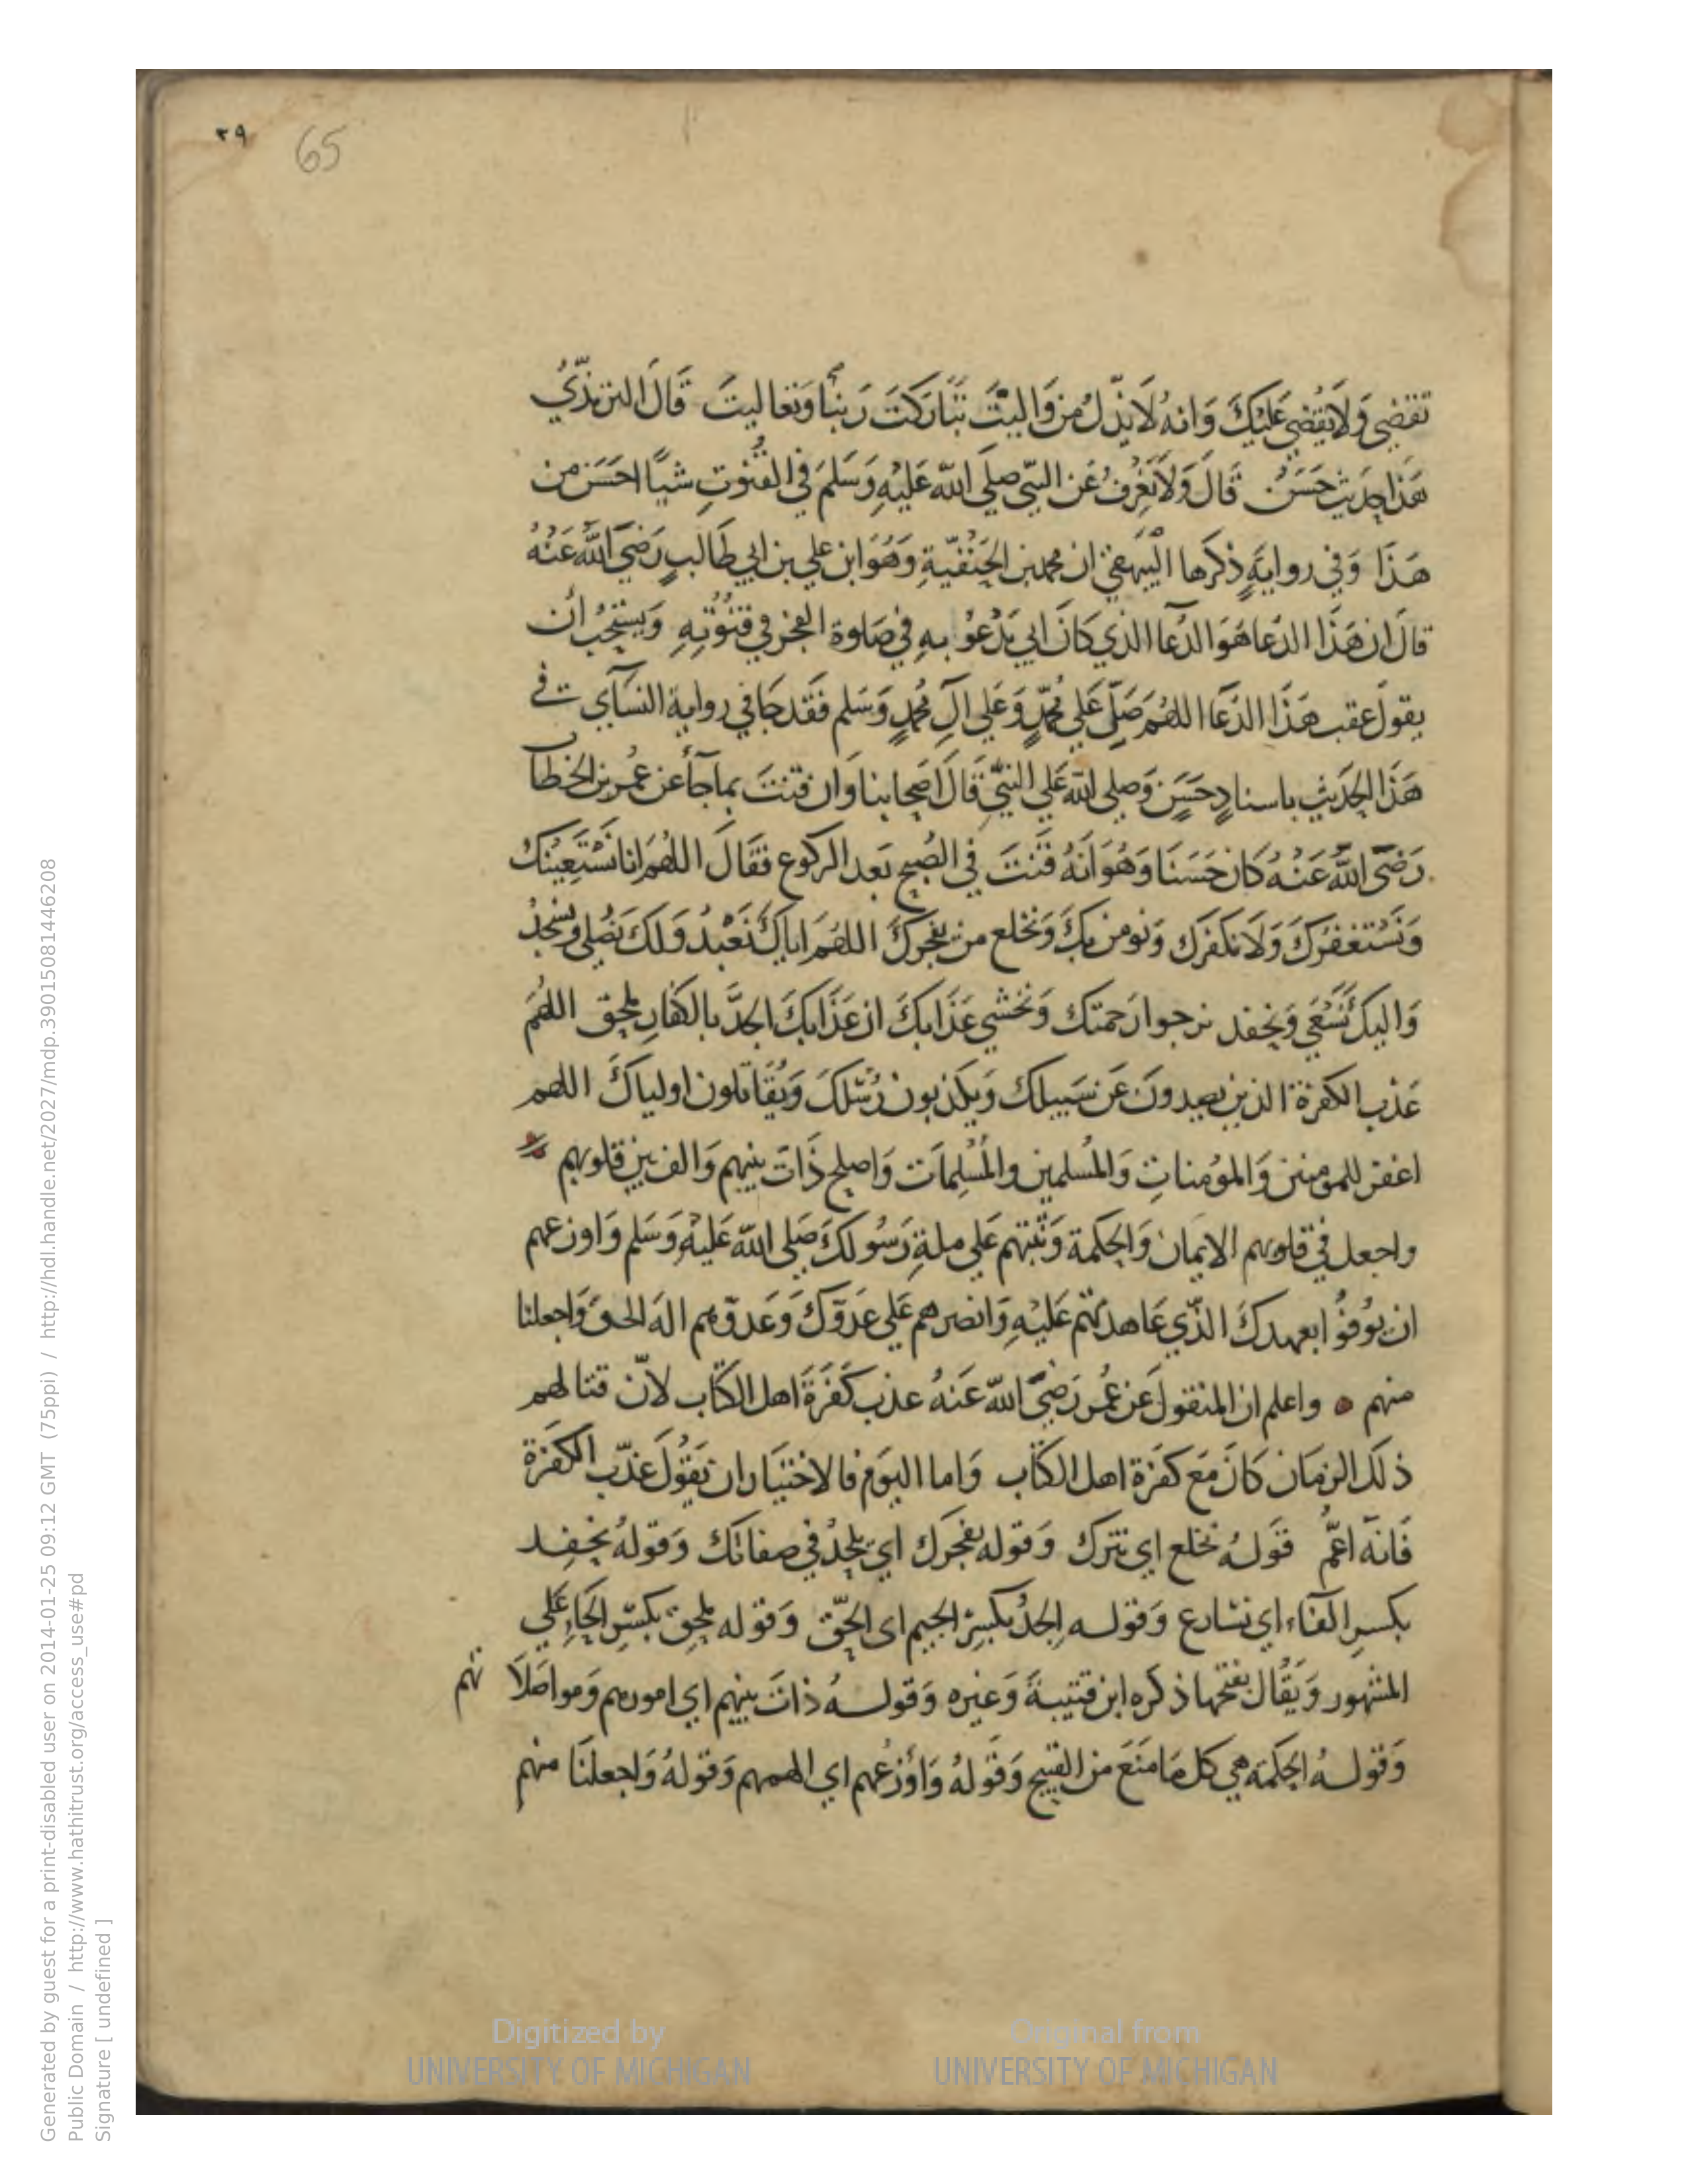 ٣٩ 65
تقضي ولا يقضي عليك وانه لا يذل من واليت تباركت ربنا وتعاليت قال الترمذي
هذا حديث حسن قال ولا نعرف عن النبي صلي الله عليه وسلم في القنوت شيا احسن من
هذا وفي رواية ذكرها البيهقي ان محمد بن الحنفية وهو ابن علي بن ابي طالب رضي الله عنه
قال ان هذا الدعا هو الدعا الذي كان ابي يدعو به في صلوة الفجر في قنوته ويستحب أن
يقول عقب هذا الدعا اللهم صل علي محمد وعلي ال محمد وسلم فقد جا في رواية النسآي في
هذا الحديث باسناد حسن وصلي الله علي النبي قال اصحابنا وان قنت بما جآ عن عمر بن الخطا
رضي الله عنه كان حسنا وهو انه قنت في الصبح بعد الركوع فقال اللهم انا نستعينك
ونستغفرك ولا نكفرك ونومن بك ونخلع من يفجرك اللهم اياك نعبد ولك نصلي ونسجد
واليك نسعي ونحفد نرجوا رحمتك ونخشي عذابك ان عذابك الجد بالكفار ملحق اللهم
عذب الكفرة الذين يصدون عن سبيلك ويكذبون رسلك ويقاتلون اولياك اللهم
اغفر للمومنين والمؤمنات والمسلمين والمسلمات واصلح ذات بينهم والف بين قلوبهم
واجعل في قلوبهم الايمان والحكمة وثبتهم علي ملة رسولك صلي الله عليه وسلم واوزعهم
ان يوفوا بعهدك الذي عاهدتهم عليه وانصرهم علي عدوك وعدوهم اله الحق واجعلنا
منهم واعلم ان المنقول عن عمر رضي الله عنه عذب كفرة اهل الكتاب لان قتالهم
ذلك الزمان كان مع كفرة اهل الكتاب واما اليوم فالاختيار ان يقول عذب الكفرة
فانه اعم قوله نخلع اي نترك وقوله يفجرك اي يلحد في صفاتك وقوله نحفد
بكسر الفاء اي نسارع وقوله الجد بكسر الجيم اى الحق وقوله ملحق بكسر الحاء علي
المشهور ويقال بفتحها ذكره ابن قتيبة وغيره وقوله ذات بينهم اي امورهم ومواصلا تهم
وقوله الحكمة هي كل ما منع من القبيح وقوله واوزعهم اي الهمهم وقوله واجعلنا منهم
Digitized by
UNIVERSITY OF MICHIGAN
Original from
UNIVERSITY OF MICHIGAN
Generated by guest for a print-disabled user on 2014-01-25 09:12 GMT (75ppi) / http://hdl.handle.net/2027/mdp.39015081446208
Public Domain / http://www.hathitrust.org/access_use#pd
Signature [ undefined ]